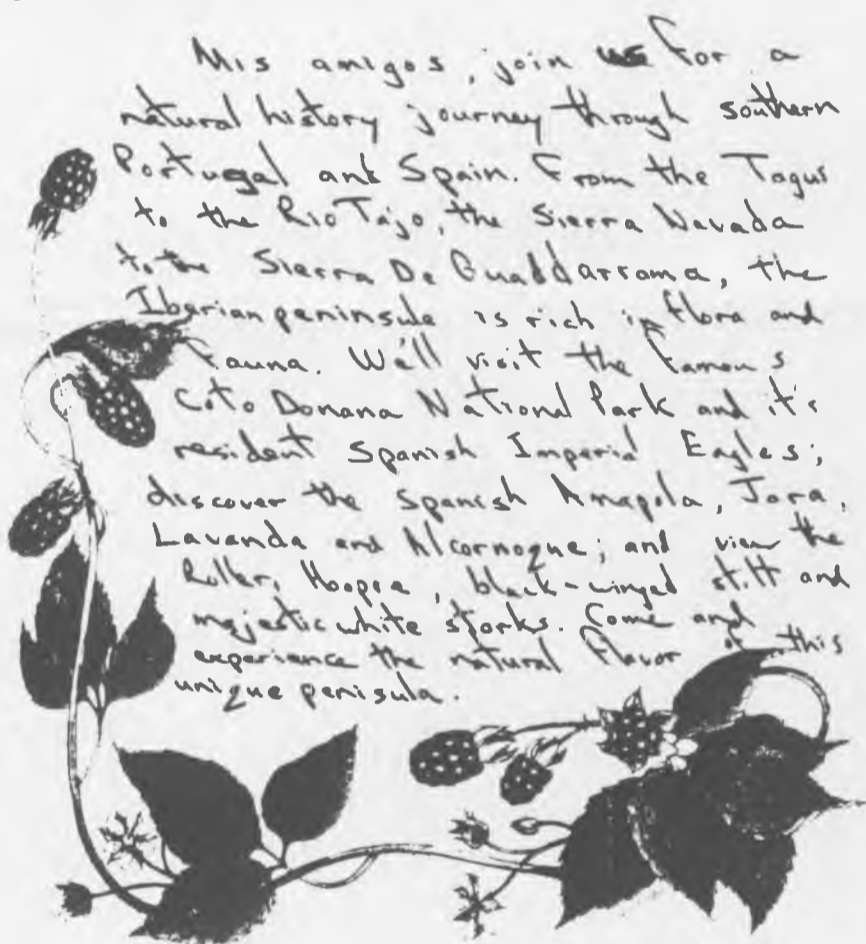 Mis amigos, join us for a
natural history journey through southern
Portugal and Spain. From the Tagus
to the Rio Tajo, the Sierra Nevada
to the Sierra De Guaddarrama, the
Iberian peninsula is rich in flora and
fauna. We'll visit the famous
Coto Donana National Park and it's
resident Spanish Imperial Eagles;
discover the Spanish Amapola, Jara,
Lavanda and Alcornoque; and view the
Roller, Hoopoe, black-winged stilt and
majestic white storks. Come and
experience the natural flavor of this
unique penisula.